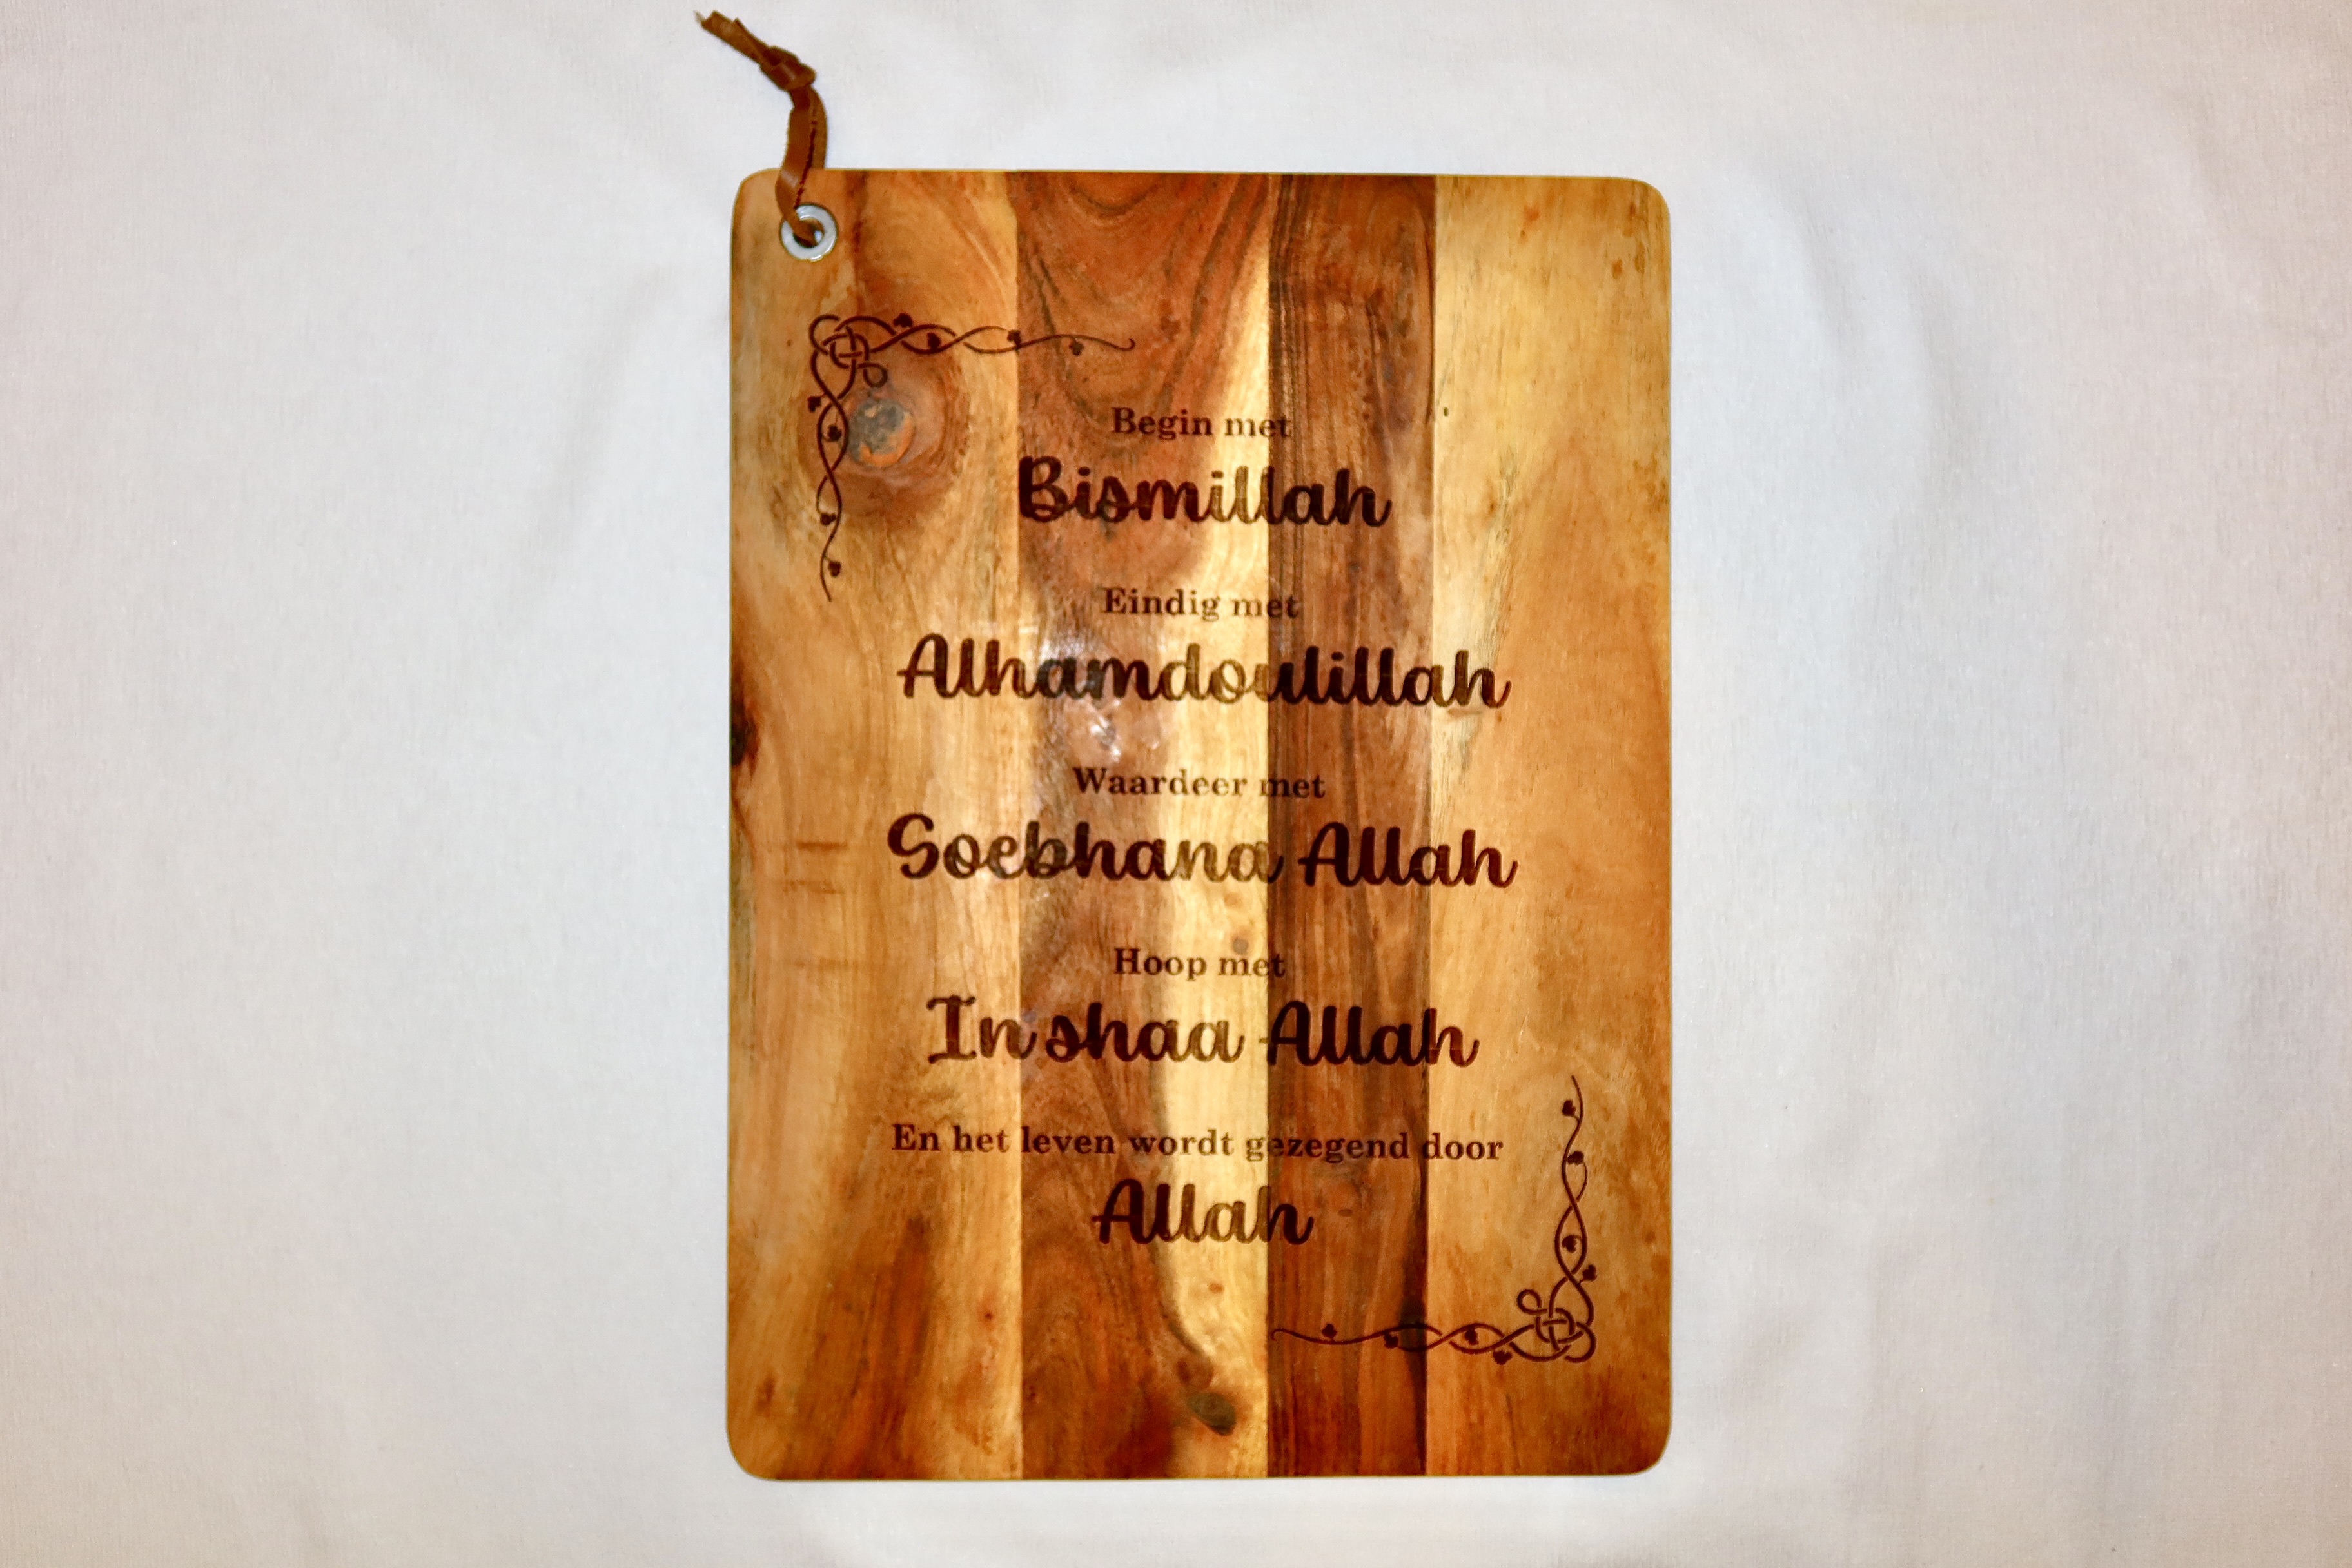 Begin met
Bismillah
Eindig met
Alhamdoulillah
Waardeer met
Soebhana Allah
Hoop met
In shaa Allah
En het leven wordt gezegend door
Allah